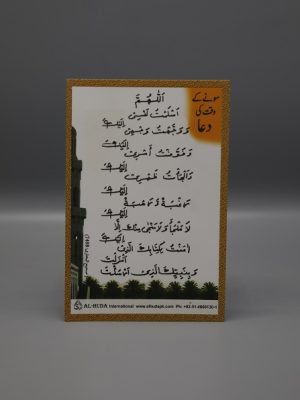 سونے کے
وقت کی
دعا
اَللّٰهُمَّ
اَسْلَمْتُ نَفْسِيْ
اِلَيْكَ
وَوَجَّهْتُ وَجْهِيَ
اِلَيْكَ
وَفَوَّضْتُ اَمْرِيْ
اِلَيْكَ
وَاَلْجَاْتُ ظَهْرِيْ
اِلَيْكَ
رَغْبَةً وَّرَهْبَةً
اِلَيْكَ
لَا مَلْجَاَ وَلَا مَنْجٰى مِنْكَ اِلَّا
اِلَيْكَ
اٰمَنْتُ بِكِتَابِكَ الَّذِيْ
اَنْزَلْتَ
وَبِنَبِيِّكَ الَّذِيْ اَرْسَلْتَ
AL-HUDA International www.alhudapk.com